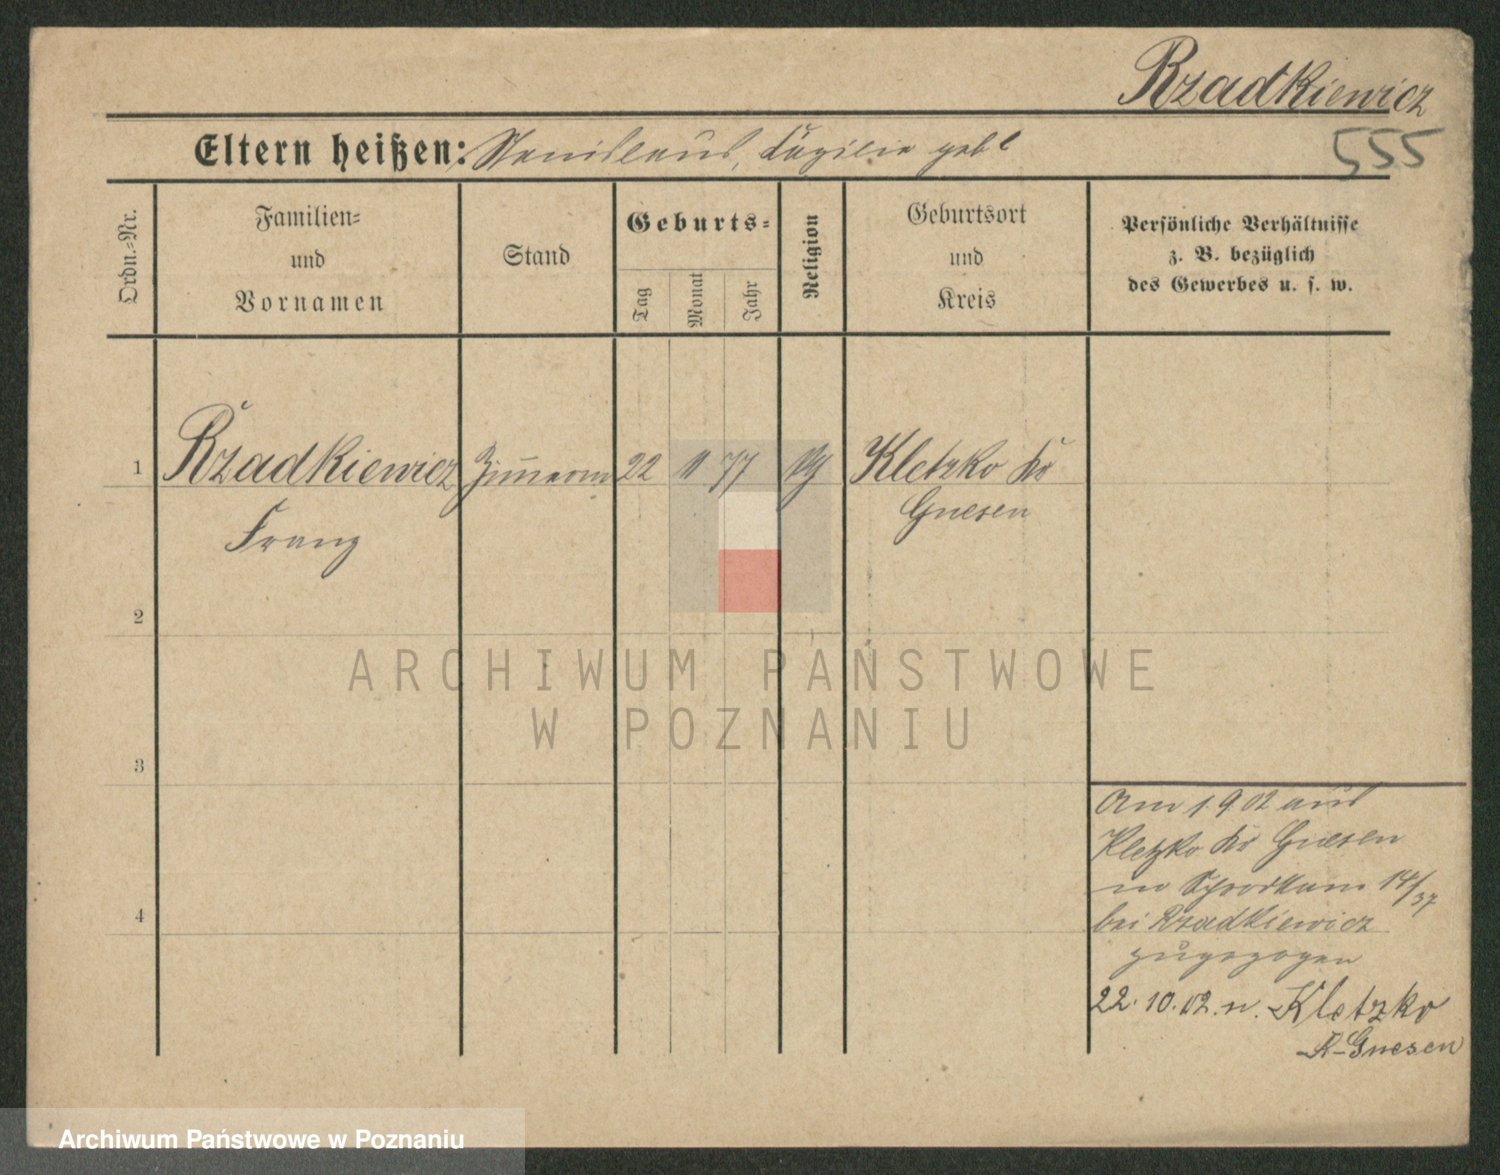 Rzadkiewicz
555
Eltern heißen: Stanislaus, Cäzilie geb
Ordn.-Nr.
Familien-
und
Vornamen
Stand
Geburts-
Tag
Monat
Jahr
Religion
Geburtsort
und
Kreis
Persönliche Verhältnisse
z. B. bezüglich
des Gewerbes u. s. w.
1 Rzadkiewicz 22 11 77 Kletzko Kr
Franz Gnesen
2
3
4
Am 1.9.02 aus
Kletzko Kr Gnesen
14/37
bei Rzadkiewicz
zugezogen
22.10.02. n. Kletzko
K-Gnesen
ARCHIWUM PAŃSTWOWE
W POZNANIU
Archiwum Państwowe w Poznaniu